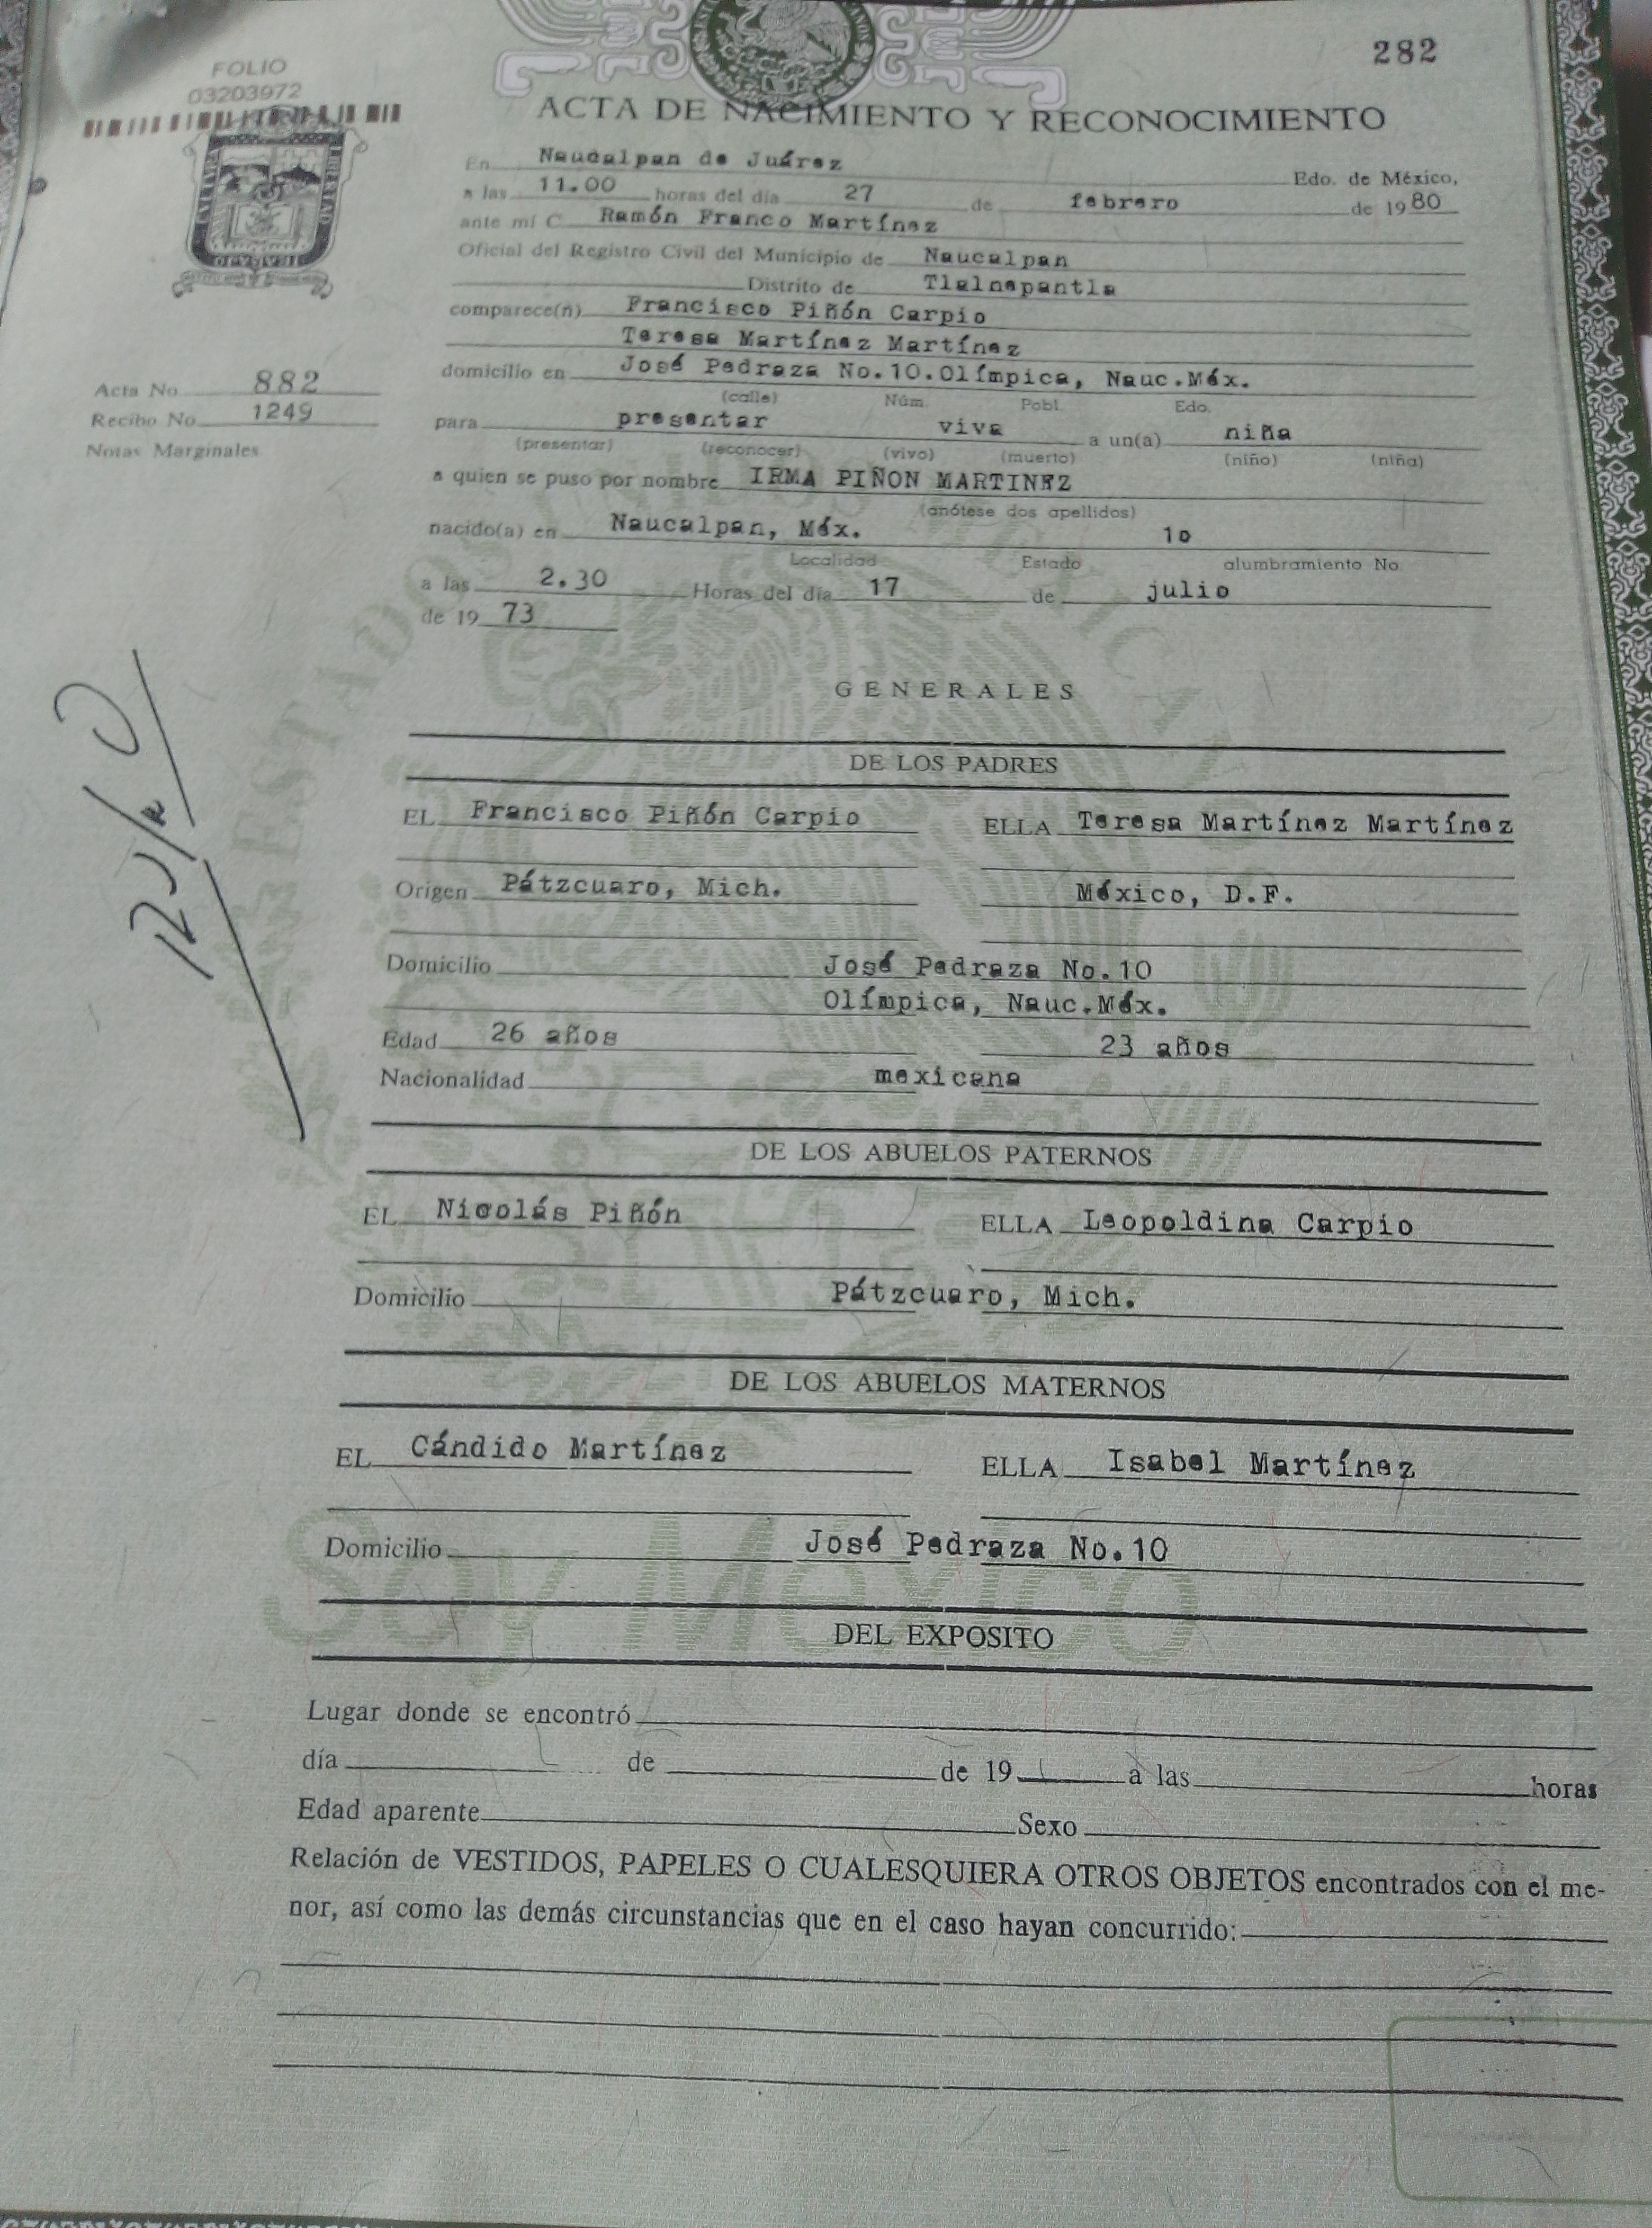 282
FOLIO
03203972
ACTA DE NACIMIENTO Y RECONOCIMIENTO
En Naucalpan de Juárez Edo. de México,
a las 11.00 horas del día 27 de febrero de 1980
ante mí C. Ramón Franco Martínez
Oficial del Registro Civil del Municipio de Naucalpan
Distrito de Tlalnepantla
comparece(n) Francisco Piñón Carpio
Teresa Martínez Martínez
domicilio en José Pedraza No.10.Olímpica, Nauc.Méx.
(calle) Núm. Pobl. Edo.
Acta No. 882
Recibo No. 1249
Notas Marginales
para presentar viva a un(a) niña
(presentar) (reconocer) (vivo) (muerto) (niño) (niña)
a quien se puso por nombre IRMA PIÑON MARTINEZ
(anótese dos apellidos)
nacido(a) en Naucalpan, Méx. 1o
Localidad Estado alumbramiento No.
a las 2.30 Horas del día 17 de julio
de 19 73
GENERALES
DE LOS PADRES
EL Francisco Piñón Carpio ELLA Teresa Martínez Martínez
Origen Pátzcuaro, Mich. México, D.F.
Domicilio José Pedraza No.10
Olímpica, Nauc.Méx.
Edad 26 años 23 años
Nacionalidad mexicana
DE LOS ABUELOS PATERNOS
EL Nicolás Piñón ELLA Leopoldina Carpio
Domicilio Pátzcuaro, Mich.
DE LOS ABUELOS MATERNOS
EL Cándido Martínez ELLA Isabel Martínez
Domicilio José Pedraza No.10
Soy México
DEL EXPOSITO
Lugar donde se encontró
día de de 19 a las horas
Edad aparente Sexo
Relación de VESTIDOS, PAPELES O CUALESQUIERA OTROS OBJETOS encontrados con el me-
nor, así como las demás circunstancias que en el caso hayan concurrido: